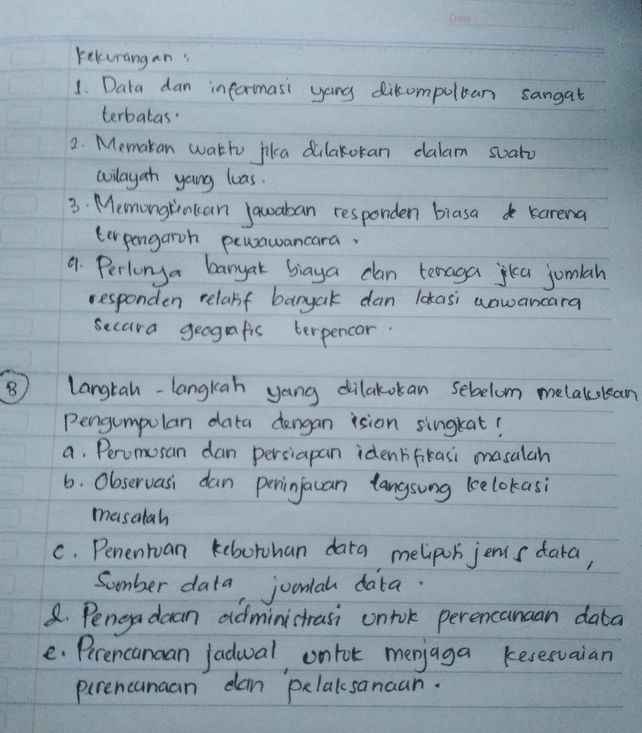 Date
Kekurangan :
1. Data dan informasi yang dikumpulkan sangat
terbatas.
2. Memakan waktu jika dilakukan dalam suatu
wilayah yang luas.
3. Memungkinkan jawaban responden biasa karena
terpengaruh pewawancara.
4. Perlunya banyak biaya dan tenaga jika jumlah
responden relatif banyak dan lokasi wawancara
secara geografis terpencar.
8 Langkah - langkah yang dilakukan sebelum melakukan
Pengumpulan data dengan singkat!
a. Perumusan dan persiapan identifikasi masalah
b. Observasi dan peninjauan langsung kelokasi
masalah
c. Penentuan kebutuhan data, meliputi jenis data,
Sumber data, jumlah data.
d. Pengadaan administrasi untuk perencanaan data
e. Perencanaan jadwal, untuk menjaga kesesuaian
perencanaan dan pelaksanaan.